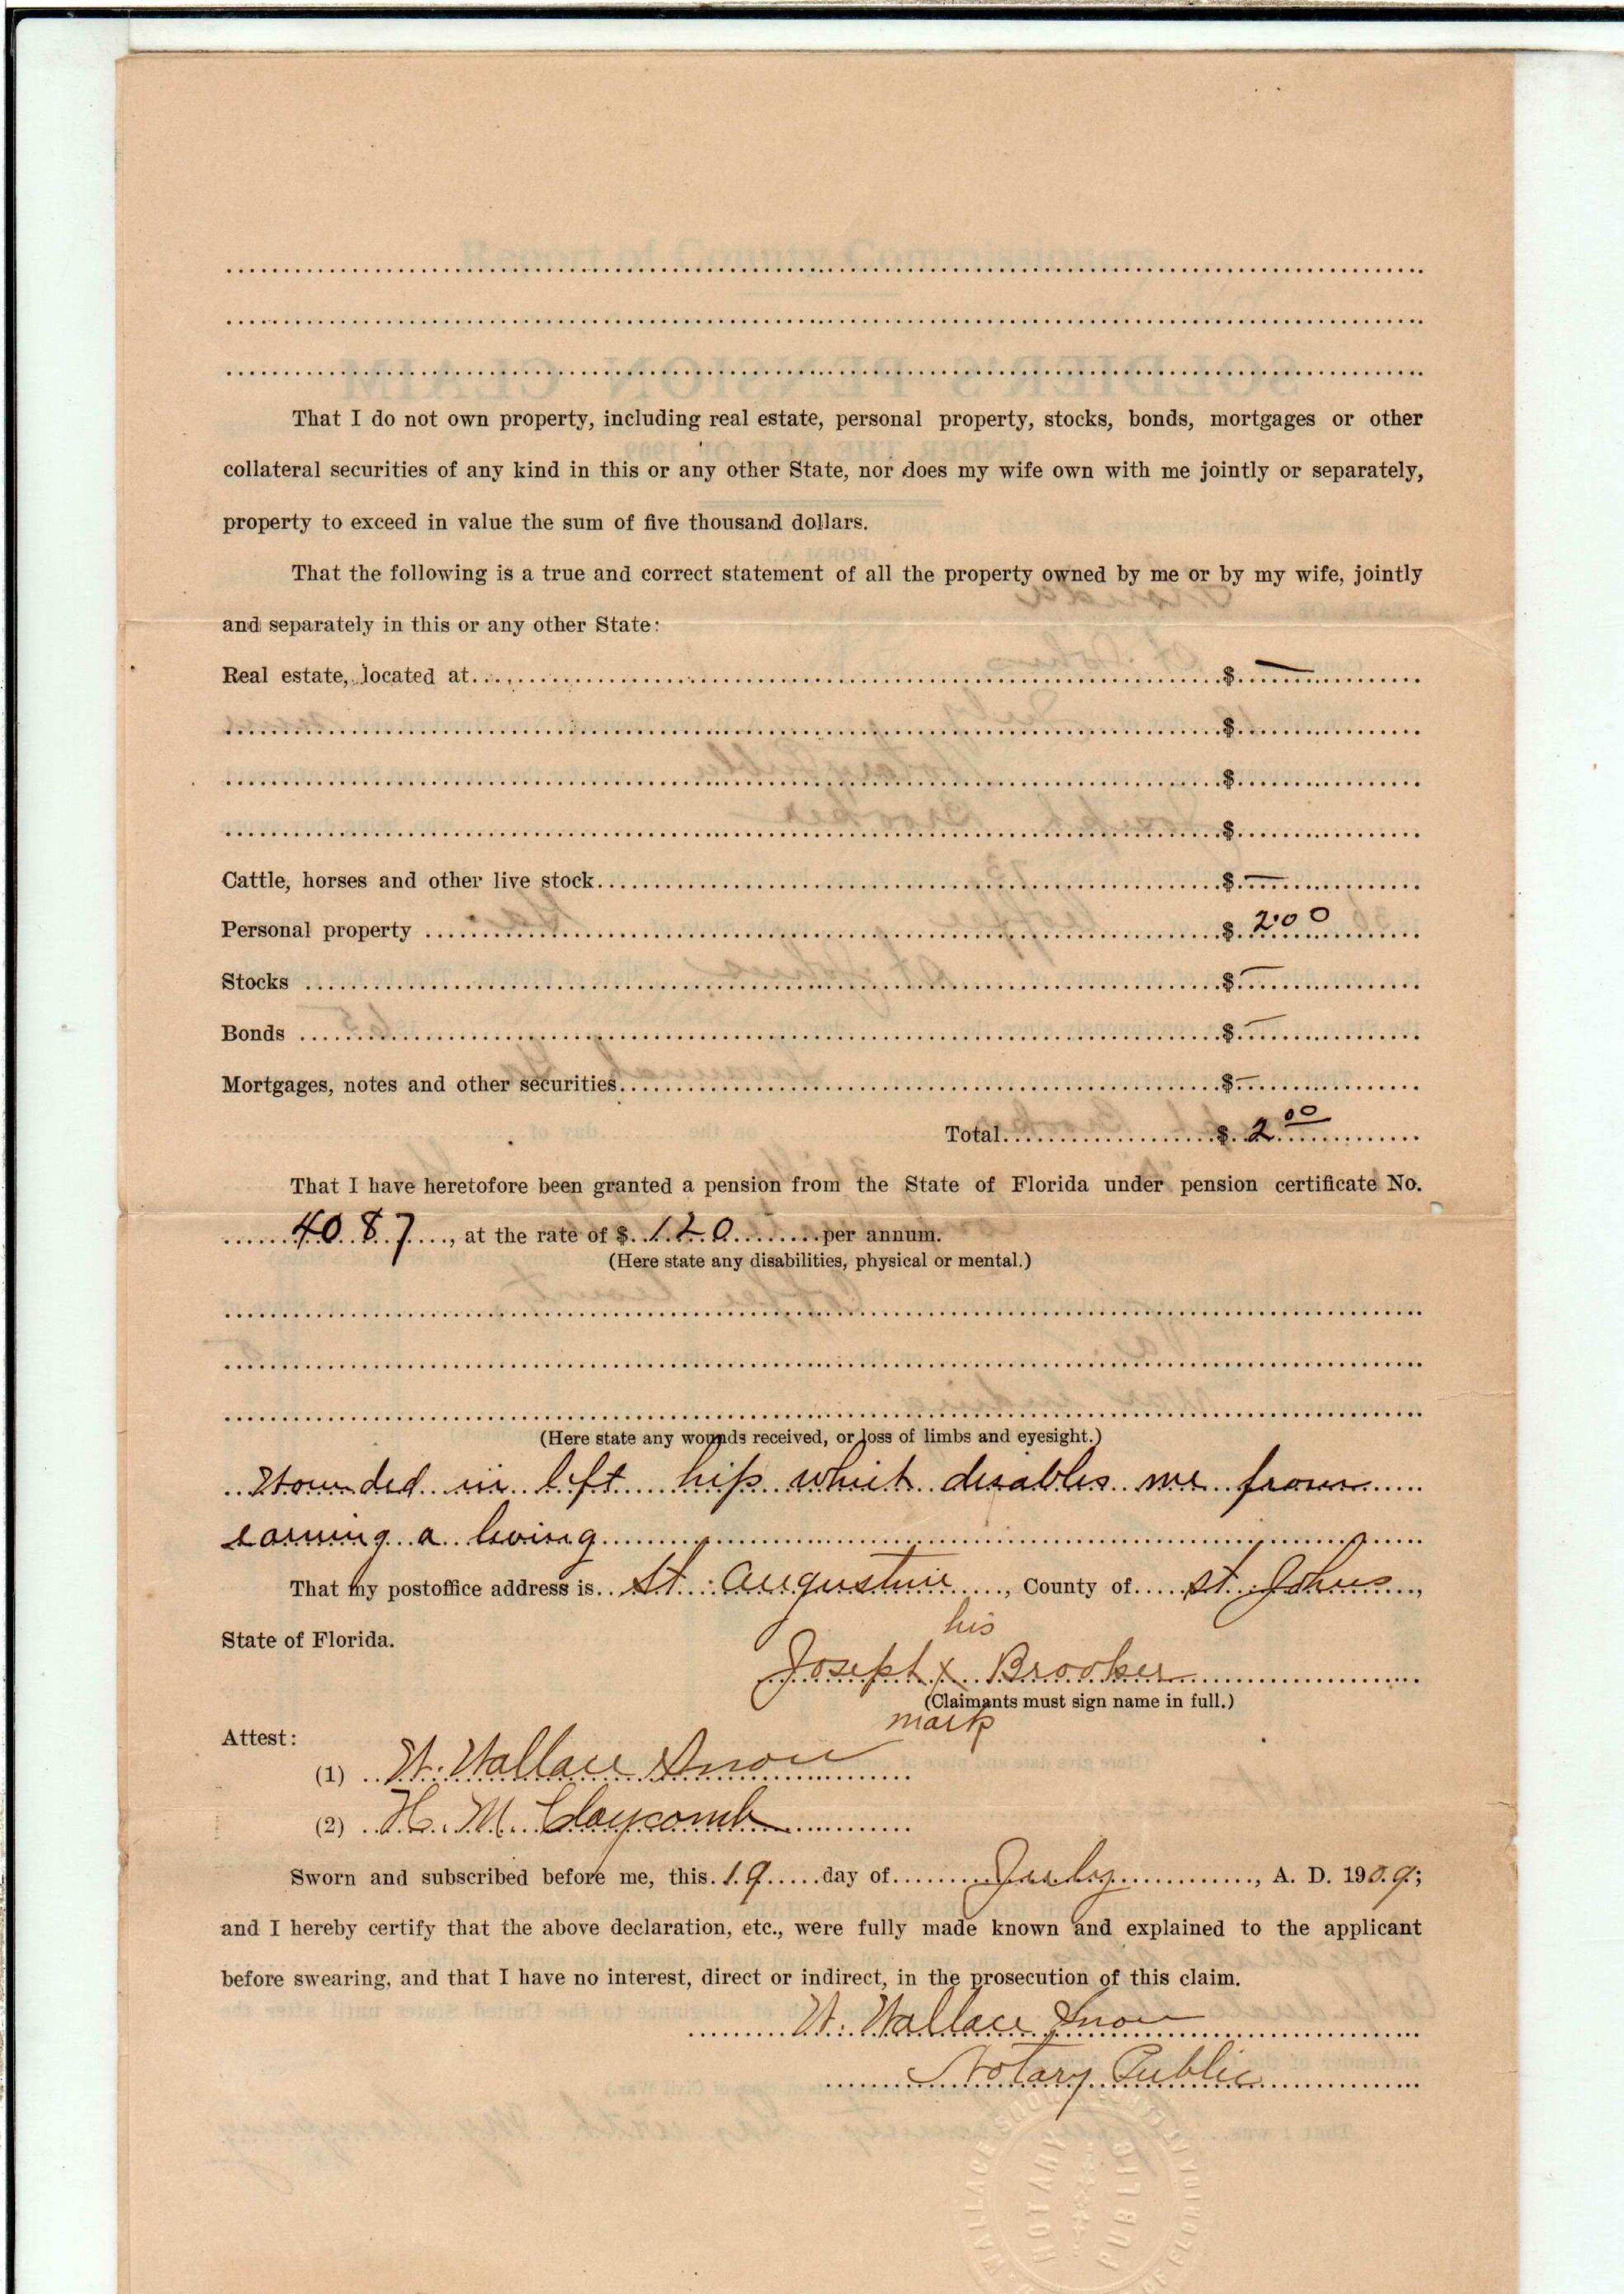 That I do not own property, including real estate, personal property, stocks, bonds, mortgages or other
collateral securities of any kind in this or any other State, nor does my wife own with me jointly or separately,
property to exceed in value the sum of five thousand dollars.
That the following is a true and correct statement of all the property owned by me or by my wife, jointly
and separately in this or any other State:
Real estate, located at.......... $ —
$
$
$
Cattle, horses and other live stock.......... $ —
Personal property .......... $ 2.00
Stocks .......... $ —
Bonds .......... $ —
Mortgages, notes and other securities.......... $ —
Total.......... $ 2.00
That I have heretofore been granted a pension from the State of Florida under pension certificate No.
4087, at the rate of $ 120 per annum.
(Here state any disabilities, physical or mental.)
(Here state any wounds received, or loss of limbs and eyesight.)
Wounded in left hip which disables me from
earning a living
That my postoffice address is St. Augustine, County of St. Johns,
his
State of Florida.
Joseph x Brooker
(Claimants must sign name in full.)
mark
Attest:
(1) W. Wallace Snow
(2) H. M. Claycomb
Sworn and subscribed before me, this 19 day of July, A. D. 1909;
and I hereby certify that the above declaration, etc., were fully made known and explained to the applicant
before swearing, and that I have no interest, direct or indirect, in the prosecution of this claim.
W. Wallace Snow
Notary Public
NOTARY PUBLIC